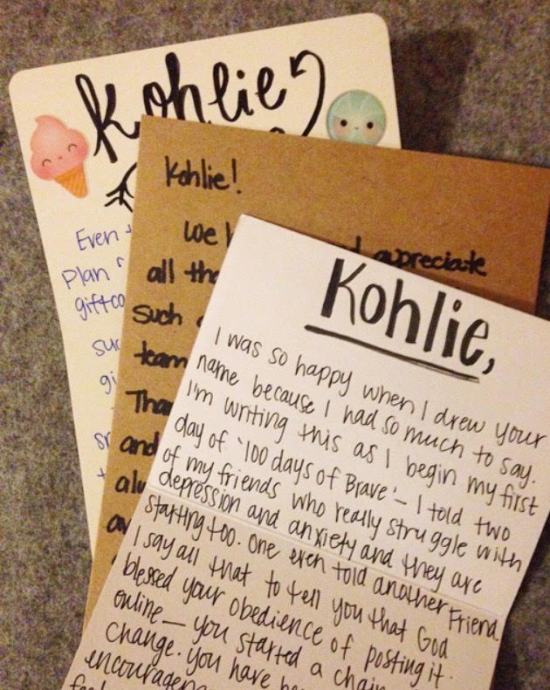 Kohlie
Even
Plan
giftca
Kohlie!
We appreciate
all tha
such
team
Tha
and
Kohlie,
I was so happy when I drew your
name because I had so much to say.
I'm writing this as I begin my first
day of '100 days of Brave' – I told two
of my friends who really struggle with
depression and anxiety and they are
starting too. One even told another friend.
I say all that to tell you that God
blessed your obedience of posting it
online — you started a chain
change. You have be
encourage